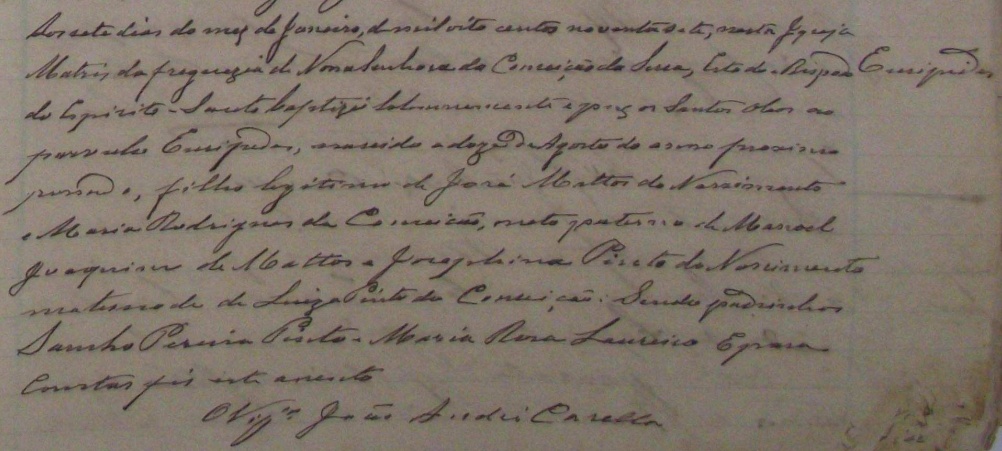 Aos sete dias do mez de Janeiro, de mil oito centos noventa e sete, nesta Igreja
Matris da freguezia de Nossa Senhora da Conceição da Serra, Estado Bispado Euripedes
do Espirito-Santo baptizei solemnemente e puz os Santos Oleos ao
parvulo Euripedes, nascido a doze de Agosto do anno proximo
passado, filho legitimo de José Mattos do Nascimento
e Maria Rodrigues da Conceição, neto paterno de Manoel
Joaquim de Mattos e Josephina Pinto do Nascimento
materno de de Luiza Pinto da Conceição. Sendo padrinhos
Sancho Pereira Pinto e Maria Rosa Loureiro E para
constar fis este assento
O Vigº João André Casella